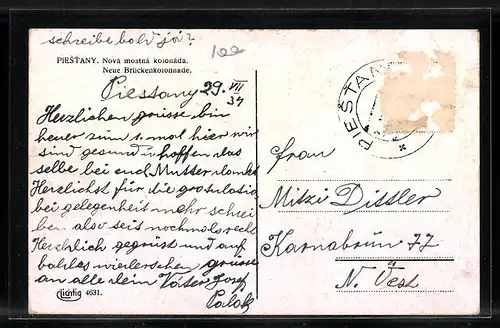 schreibe bold ja?
100
PIEŠŤANY. Nová mostná kolonáda.
Neue Brückenkolonnade.
Piestany 29 VII 34
Herzlichen grüsse bin
heuer zum 1. mal hier wir
sind gesund u hoffen das
selbe bei euch Mutter dankt
Herzlichst für die gratulatio
bei gelegenheit mehr schrei
ben also seit nochmols recht
Herzlich gegrüst und auf
baldes wiedersehen grüsse
an alle dein Vater Josef
Lichtig 4631.
PIEŠŤAN
Frau
Mitzi Dittler
Karnabrun 77
N. Öest